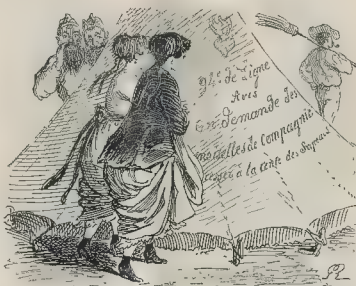 94e. de Ligne
Avis
On demande des
moiselles de Compagnie
à la tente des Sapeurs